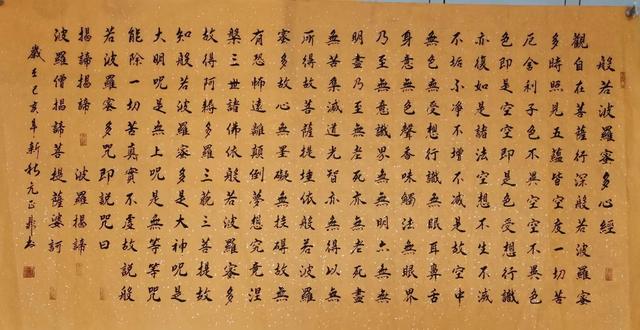 般若波羅蜜多心經
觀自在菩薩行深般若波羅蜜
多時照見五蘊皆空度一切苦
厄舍利子色不異空空不異色
色即是空空即是色受想行識
亦復如是諸法空想不生不滅
不垢不淨不增不減是故空中
無色無受想行識無眼耳鼻舌
身意無色聲香味觸法無眼界
乃至無意識界無無明亦無無
明盡乃至無老死亦無老死盡
無苦集滅道無智亦無得以無
所得故菩薩提埵依般若波羅
蜜多故心無罣礙無罣礙故無
有恐怖遠離顛倒夢想究竟涅
槃三世諸佛依般若波羅蜜多
故得阿耨多羅三藐三菩提故
知般若波羅蜜多是大神呪是
大明呪是無上呪是無等等呪
能除一切苦真實不虛故說般
若波羅蜜多呪即說呪曰
揭諦揭諦 波羅揭諦
波羅僧揭諦菩提薩婆訶
歲在己亥年新秋元正書